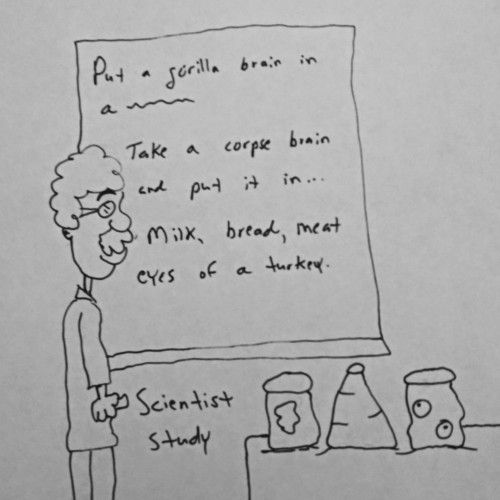 Put a gorilla brain in
a
Take a corpse brain
and put it in...
Milk, bread, meat
eyes of a turkey.
Scientist
study